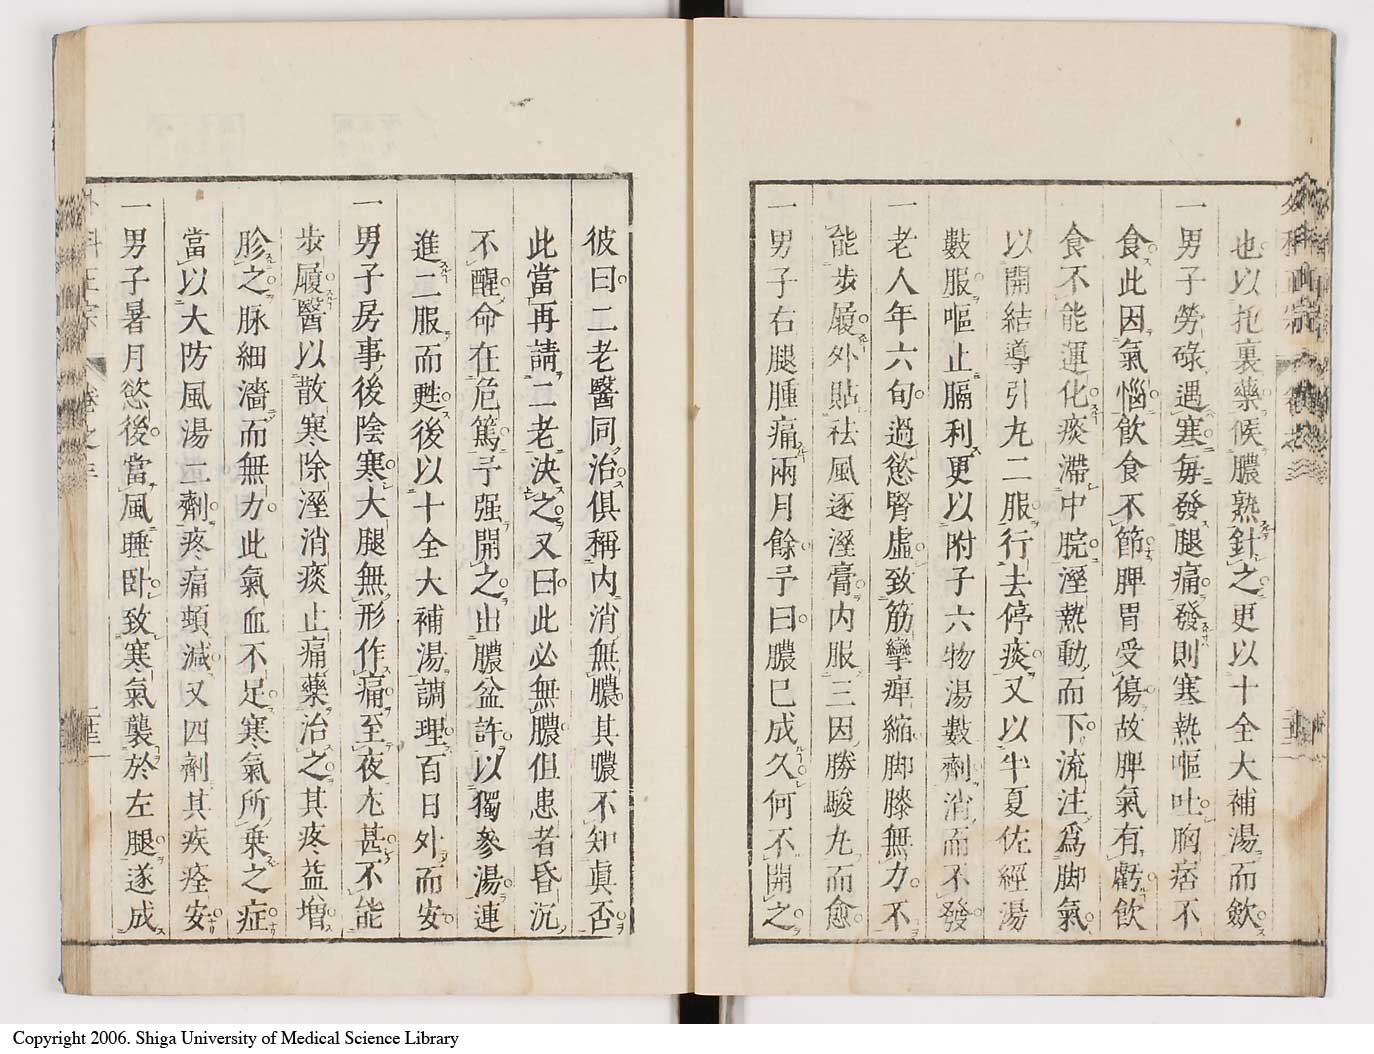 也以托裏藥候膿熟針之更以十全大補湯而歛
一男子勞碌遇寒每發腿痛發則寒熱嘔吐胸痞不
食此因氣惱飲食不節脾胃受傷故脾氣有虧飲
食不能運化痰滯中脘溼熱動而下流注爲脚氣
以開結導引丸二服行去停痰又以半夏佐經湯
數服嘔止膈利更以附子六物湯數劑消而不發
一老人年六旬過慾腎虛致筋攣痺縮脚膝無力不
能步履外貼祛風逐溼膏内服三因勝駿丸而愈
一男子右腿腫痛兩月餘予曰膿已成久何不開之
彼曰二老醫同治俱稱内消無膿其膿不知真否
此當再請二老決之又曰此必無膿但患者昏沉
不醒命在危篤予强開之出膿盆許以獨參湯連
進二服而甦後以十全大補湯調理百日外而安
一男子房事後陰寒大腿無形作痛至夜尤甚不能
步履醫以散寒除溼消痰止痛藥治之其疼益增
胗之脉細濇而無力此氣血不足寒氣所乘之症
當以大防風湯二劑疼痛頓減又四劑其疾痊安
一男子暑月慾後當風睡卧致寒氣襲於左腿遂成
科正宗
卷之三
Copyright 2006. Shiga University of Medical Science Library